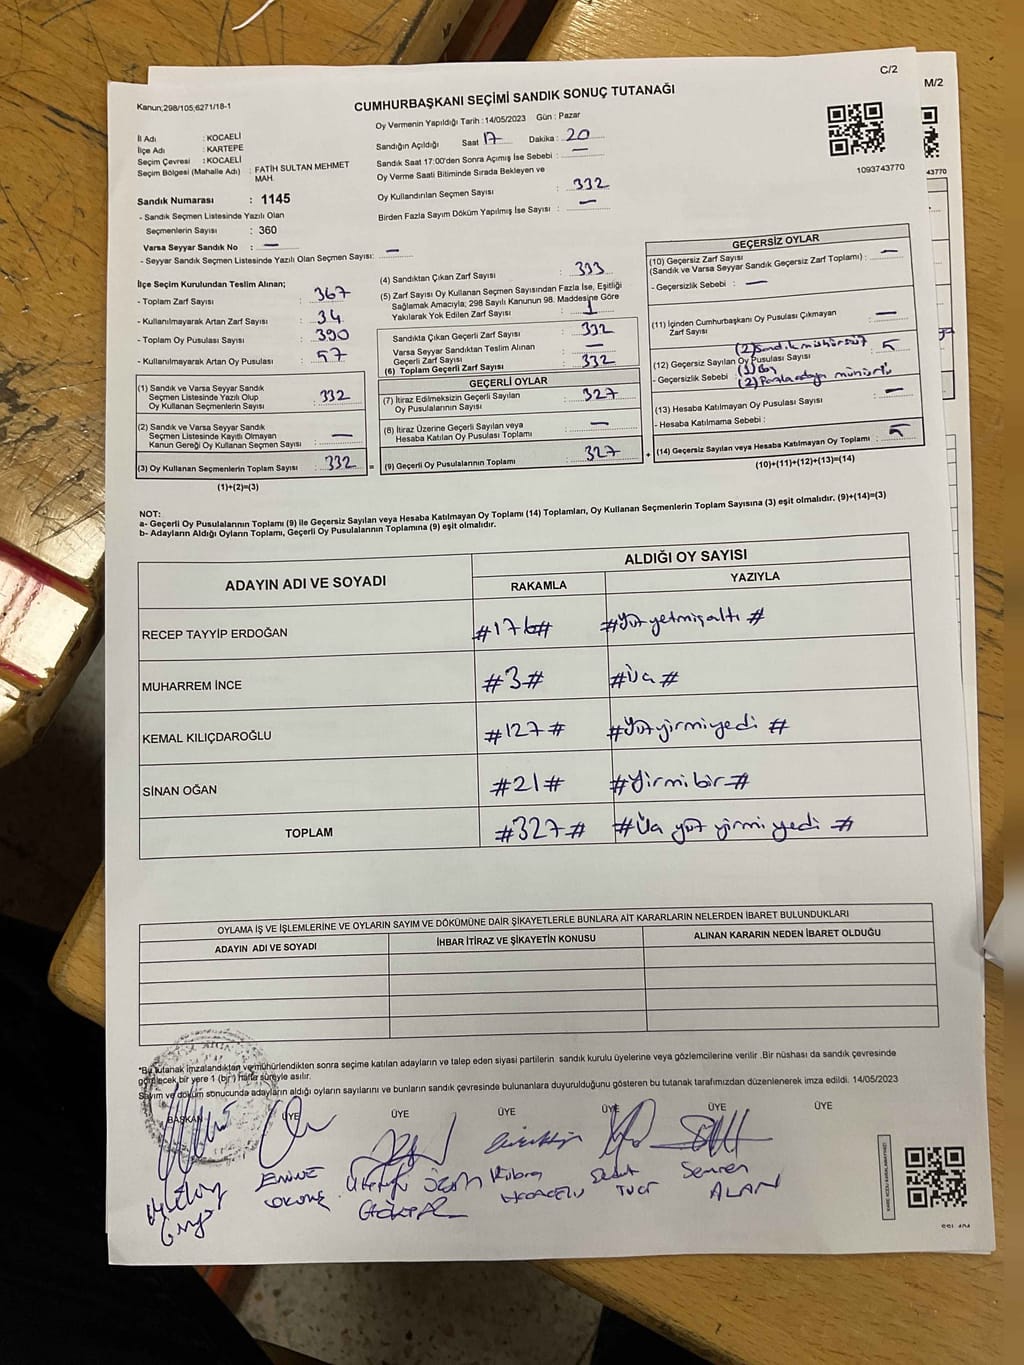 C/2
M/2
Kanun;298/105;6271/18-1
CUMHURBAŞKANI SEÇİMİ SANDIK SONUÇ TUTANAĞI
Oy Vermenin Yapıldığı Tarih : 14/05/2023 Gün : Pazar
İl Adı : KOCAELİ
İlçe Adı : KARTEPE
Seçim Çevresi : KOCAELİ
Seçim Bölgesi (Mahalle Adı) : FATİH SULTAN MEHMET MAH.
Sandığın Açıldığı Saat 17 Dakika : 20
Sandık Saat 17:00'den Sonra Açımış İse Sebebi : —
Oy Verme Saati Bitiminde Sırada Bekleyen ve
Oy Kullandırılan Seçmen Sayısı : 332
Birden Fazla Sayım Döküm Yapılmış İse Sayısı : —
1093743770
43770
Sandık Numarası : 1145
- Sandık Seçmen Listesinde Yazılı Olan
Seçmenlerin Sayısı : 360
Varsa Seyyar Sandık No : —
- Seyyar Sandık Seçmen Listesinde Yazılı Olan Seçmen Sayısı: —
İlçe Seçim Kurulundan Teslim Alınan;
- Toplam Zarf Sayısı : 367
- Kullanılmayarak Artan Zarf Sayısı : 34
- Toplam Oy Pusulası Sayısı : 390
- Kullanılmayarak Artan Oy Pusulası : 57
(1) Sandık ve Varsa Seyyar Sandık
Seçmen Listesinde Yazılı Olup
Oy Kullanan Seçmenlerin Sayısı : 332
(2) Sandık ve Varsa Seyyar Sandık
Seçmen Listesinde Kayıtlı Olmayan
Kanun Gereği Oy Kullanan Seçmen Sayısı : —
(3) Oy Kullanan Seçmenlerin Toplam Sayısı : 332 =
(1)+(2)=(3)
(4) Sandıktan Çıkan Zarf Sayısı : 333
(5) Zarf Sayısı Oy Kullanan Seçmen Sayısından Fazla İse, Eşitliği
Sağlamak Amacıyla; 298 Sayılı Kanunun 98. Maddesine Göre
Yakılarak Yok Edilen Zarf Sayısı : 1
Sandıkta Çıkan Geçerli Zarf Sayısı : 332
Varsa Seyyar Sandıktan Teslim Alınan
Geçerli Zarf Sayısı : —
(6) Toplam Geçerli Zarf Sayısı : 332
GEÇERLİ OYLAR
(7) İtiraz Edilmeksizin Geçerli Sayılan
Oy Pusulalarının Sayısı : 327
(8) İtiraz Üzerine Geçerli Sayılan veya
Hesaba Katılan Oy Pusulası Toplamı : —
(9) Geçerli Oy Pusulalarının Toplamı : 327 +
GEÇERSİZ OYLAR
(10) Geçersiz Zarf Sayısı
(Sandık ve Varsa Seyyar Sandık Geçersiz Zarf Toplamı) : —
- Geçersizlik Sebebi : —
(11) İçinden Cumhurbaşkanı Oy Pusulası Çıkmayan
Zarf Sayısı : —
(2) Sandık mühürsüz
(12) Geçersiz Sayılan Oy Pusulası Sayısı : 5
- Geçersizlik Sebebi : (1) Boş
(2) Fazla adaya mühürlü
(13) Hesaba Katılmayan Oy Pusulası Sayısı : —
- Hesaba Katılmama Sebebi :
(14) Geçersiz Sayılan veya Hesaba Katılmayan Oy Toplamı : 5
(10)+(11)+(12)+(13)=(14)
NOT:
a- Geçerli Oy Pusulalarının Toplamı (9) ile Geçersiz Sayılan veya Hesaba Katılmayan Oy Toplamı (14) Toplamları, Oy Kullanan Seçmenlerin Toplam Sayısına (3) eşit olmalıdır. (9)+(14)=(3)
b- Adayların Aldığı Oyların Toplamı, Geçerli Oy Pusulalarının Toplamına (9) eşit olmalıdır.
ADAYIN ADI VE SOYADI ALDIĞI OY SAYISI
RAKAMLA YAZIYLA
RECEP TAYYİP ERDOĞAN #176# #Yüz yetmiş altı #
MUHARREM İNCE #3# #Üç #
KEMAL KILIÇDAROĞLU #127# #Yüz yirmi yedi #
SİNAN OĞAN #21# #Yirmi bir #
TOPLAM #327# #Üç yüz yirmi yedi #
OYLAMA İŞ VE İŞLEMLERİNE VE OYLARIN SAYIM VE DÖKÜMÜNE DAİR ŞİKAYETLERLE BUNLARA AİT KARARLARIN NELERDEN İBARET BULUNDUKLARI
ADAYIN ADI VE SOYADI İHBAR İTİRAZ VE ŞİKAYETİN KONUSU ALINAN KARARIN NEDEN İBARET OLDUĞU
*Bu tutanak imzalandıktan ve mühürlendikten sonra seçime katılan adayların ve talep eden siyasi partilerin sandık kurulu üyelerine veya gözlemcilerine verilir .Bir nüshası da sandık çevresinde
görülecek bir yere 1 (bir) hafta süreyle asılır.
Sayım ve döküm sonucunda adayların aldığı oyların sayılarını ve bunların sandık çevresinde bulunanlara duyurulduğunu gösteren bu tutanak tarafımızdan düzenlenerek imza edildi. 14/05/2023
BAŞKAN ÜYE ÜYE ÜYE ÜYE ÜYE ÜYE
EMİNE
Kübra
Sedat
Semren
ALAN